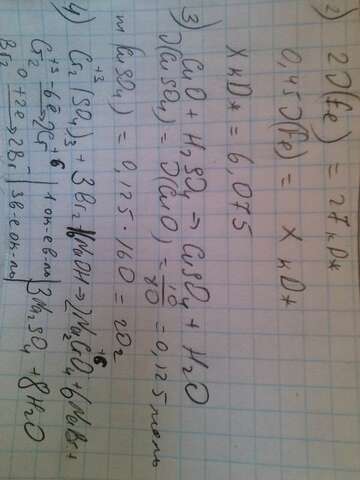 2) 2 ϑ(Fe) = 27 кДж
0,45 ϑ(Fe) = X кДж
X кДж = 6,075
3) CuO + H₂SO₄ → CuSO₄ + H₂O
ϑ(CuSO₄) = ϑ(CuO) = 10/80 = 0,125 моль
m(CuSO₄) = 0,125 · 160 = 20 г
4) Cr₂⁺³(SO₄)₃ + 3Br₂ + 16NaOH → 2Na₂Cr⁺⁶O₄ + 6NaBr +
3Na₂SO₄ + 8H₂O
Cr₂⁺³ –6e̅→ 2Cr⁺⁶ | 1 ок-ев-ль
Br₂⁰ +2e̅→ 2Br⁻ | 3 в-е ок-ль